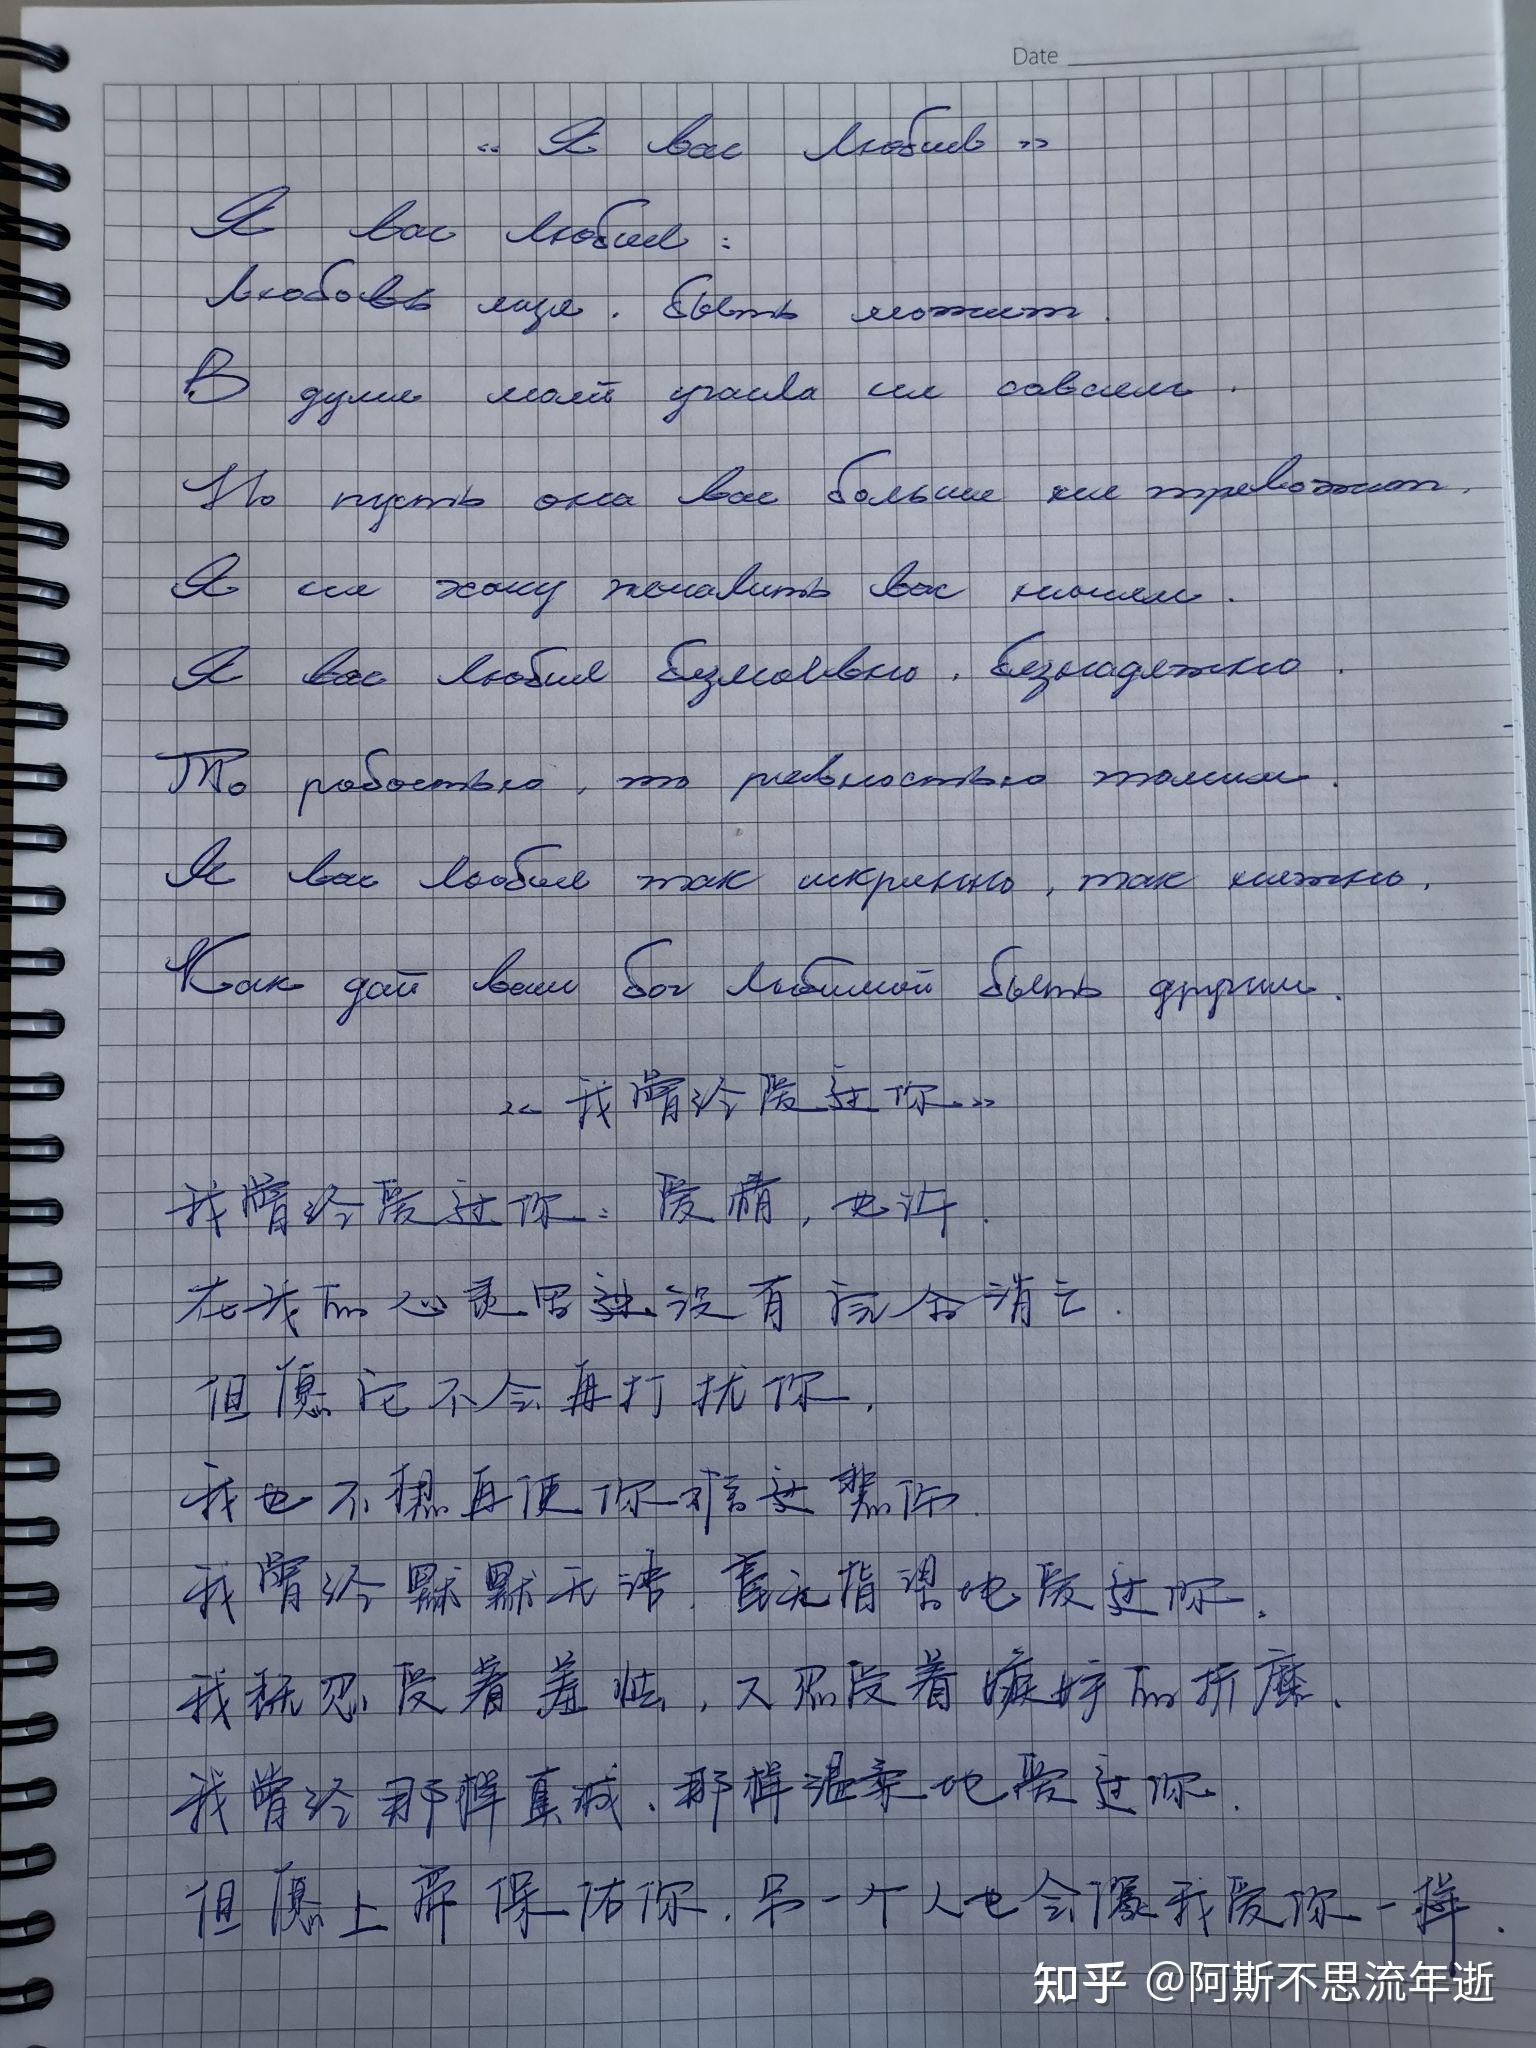 Date
« Я вас любил »
Я вас любил :
Любовь еще . быть может .
В душе моей угасла не совсем .
Но пусть она вас больше не тревожит .
Я не хочу печалить вас ничем .
Я вас любил безмолвно , безнадежно .
То робостью , то ревностью томим .
Я вас любил так искренно , так нежно .
Как дай вам бог любимой быть другим .
《我曾经爱过你》
我曾经爱过你：爱情，也许，
在我的心灵里还没有完全消亡．
但愿它不会再打扰你，
我也不想再使你难过悲伤．
我曾经默默无语，毫无指望地爱过你，
我既忍受着羞怯，又忍受着嫉妒的折磨，
我曾经那样真诚、那样温柔地爱过你．
但愿上帝保佑你，另一个人也会像我爱你一样．
知乎 @阿斯不思流年逝